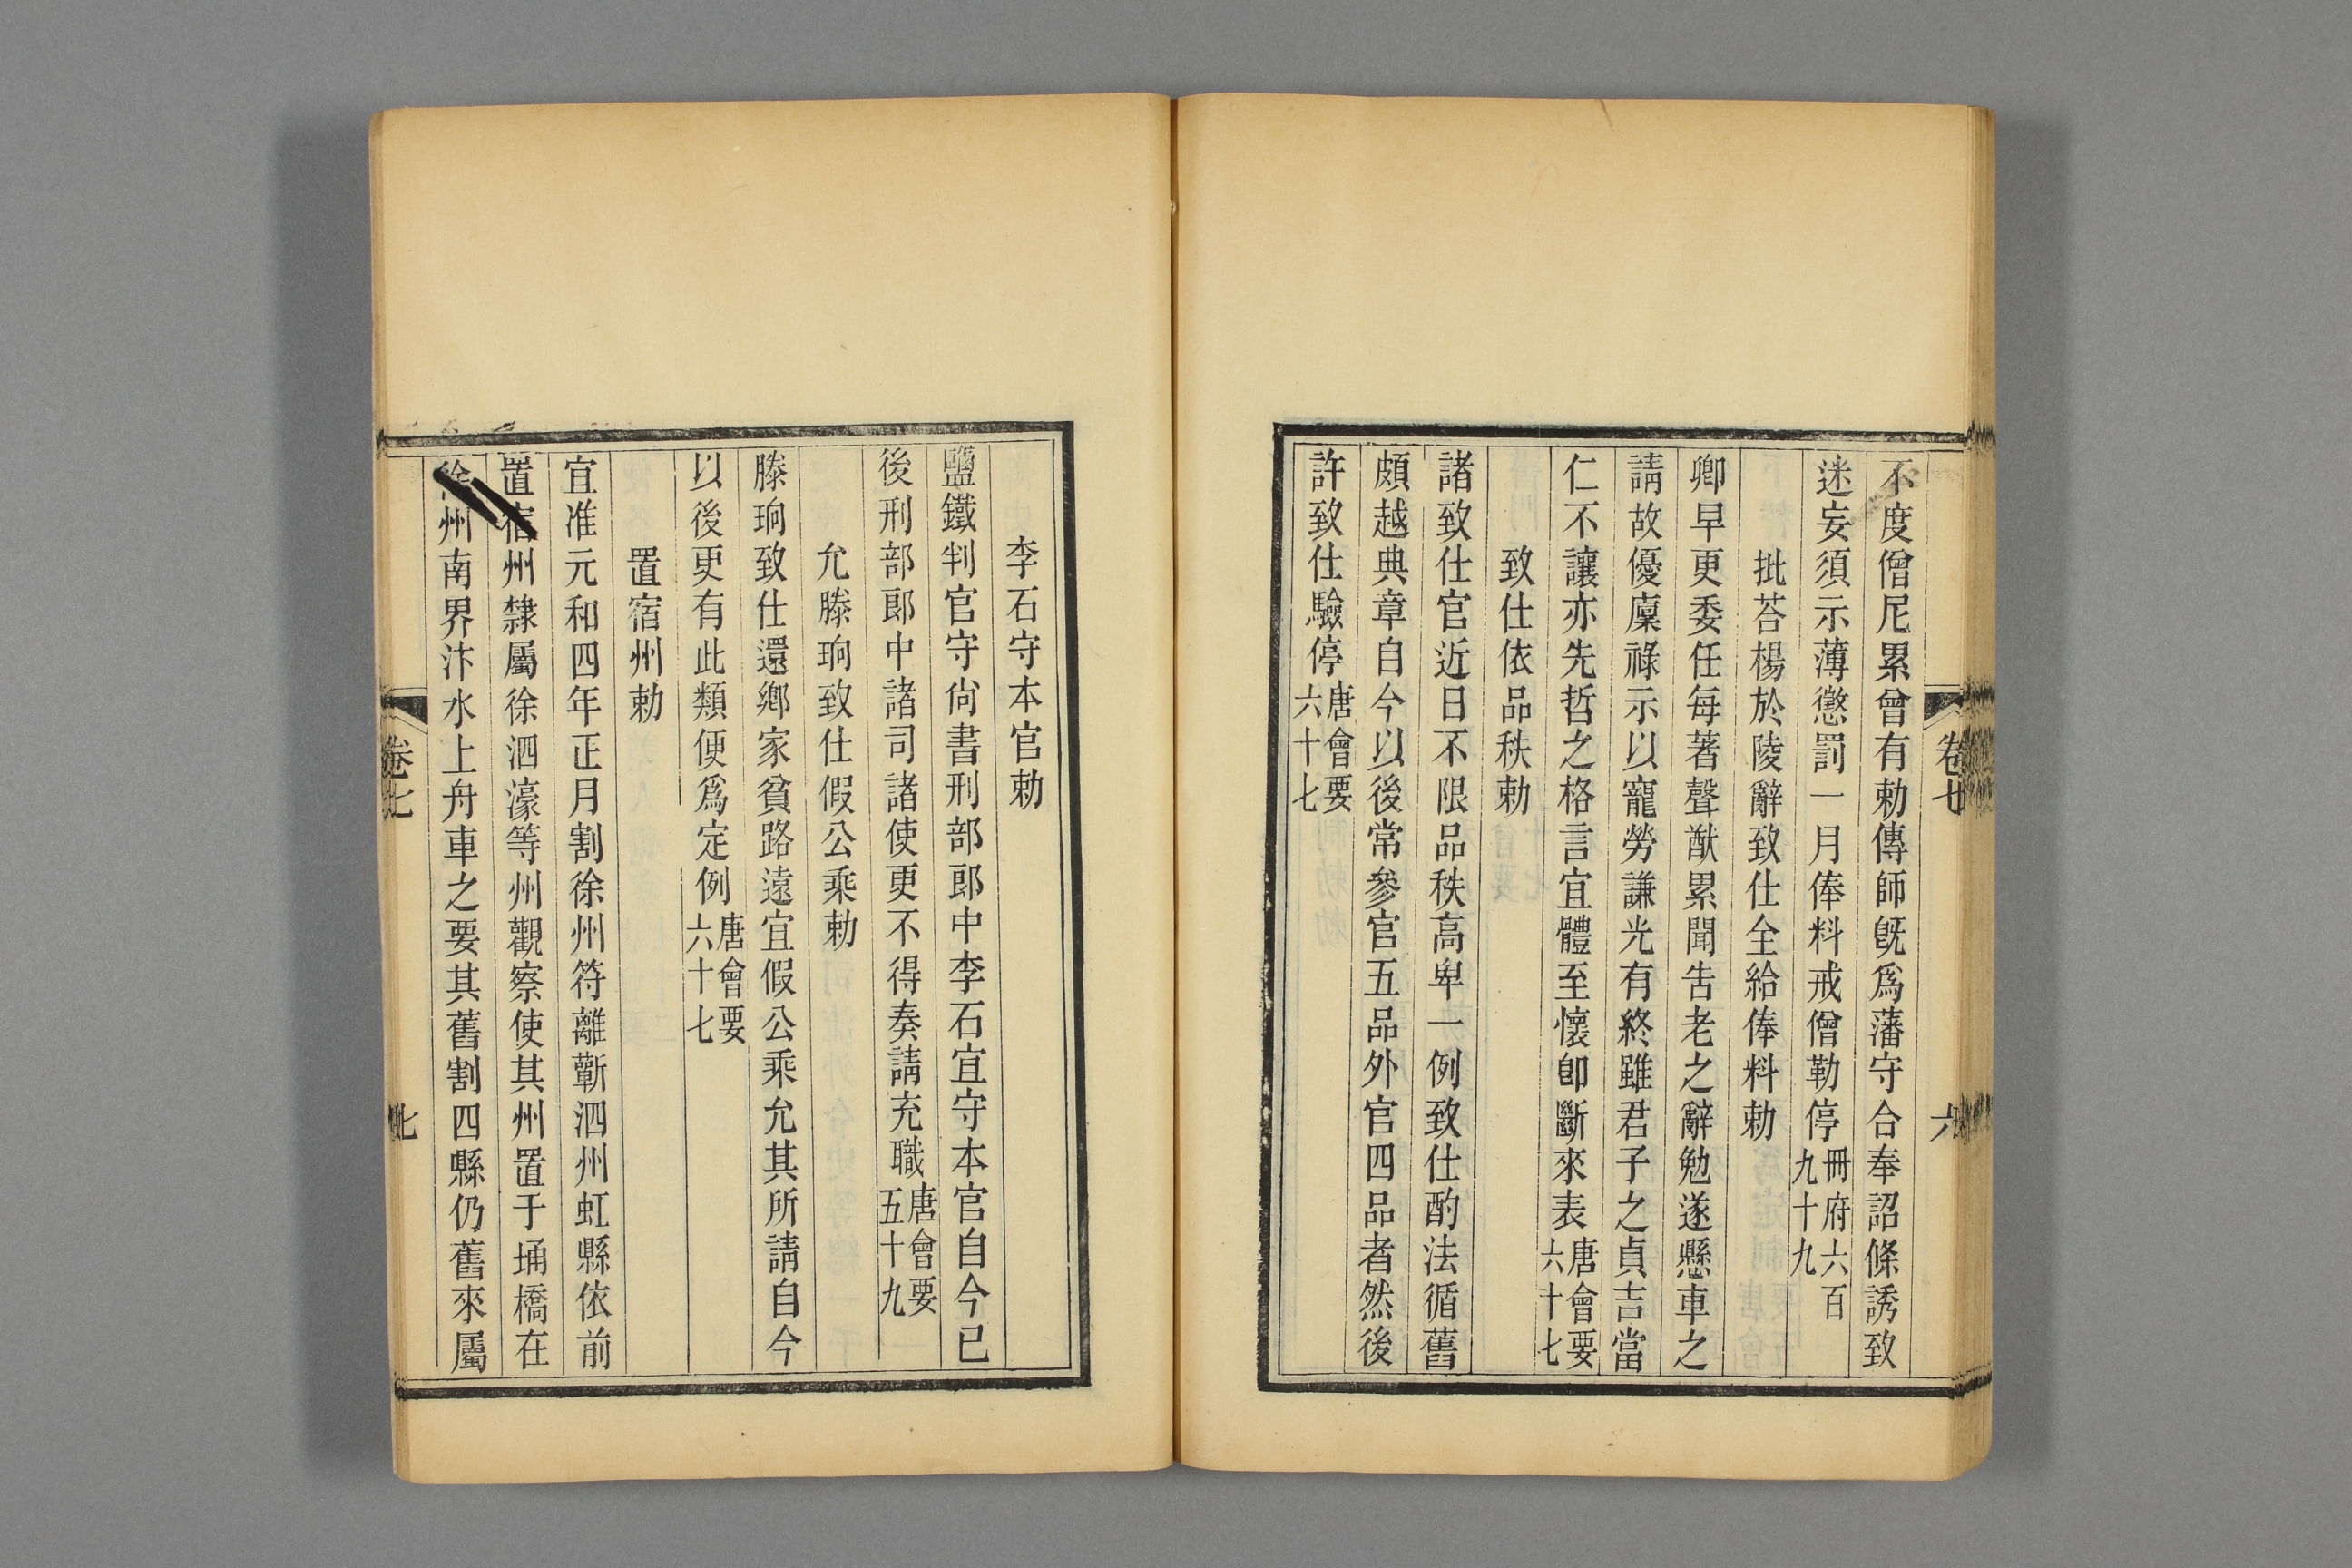 不度僧尼累曾有勅傳師旣爲藩守合奉詔條誘致
迷妄須示薄懲罰一月俸料戒僧勒停冊府六百九十九
批荅楊於陵辭致仕全給俸料勅
卿早更委任每著聲猷累聞吿老之辭勉遂懸車之
請故優廩祿示以寵勞謙光有終雖君子之貞吉當
仁不讓亦先哲之格言宜體至懷卽斷來表唐會要六十七
致仕依品秩勅
諸致仕官近日不限品秩高卑一例致仕酌法循舊
頗越典章自今以後常參官五品外官四品者然後
許致仕驗停唐會要六十七
李石守本官勅
鹽鐵判官守尙書刑部郎中李石宜守本官自今已
後刑部郎中諸司諸使更不得奏請充職唐會要五十九
允滕珦致仕假公乘勅
滕珦致仕還鄉家貧路遠宜假公乘允其所請自今
以後更有此類便爲定例唐會要六十七
置宿州勅
宜准元和四年正月割徐州符離蘄泗州虹縣依前
置宿州隸屬徐泗濠等州觀察使其州置于埇橋在
徐州南界汴水上舟車之要其舊割四縣仍舊來屬
卷七
七